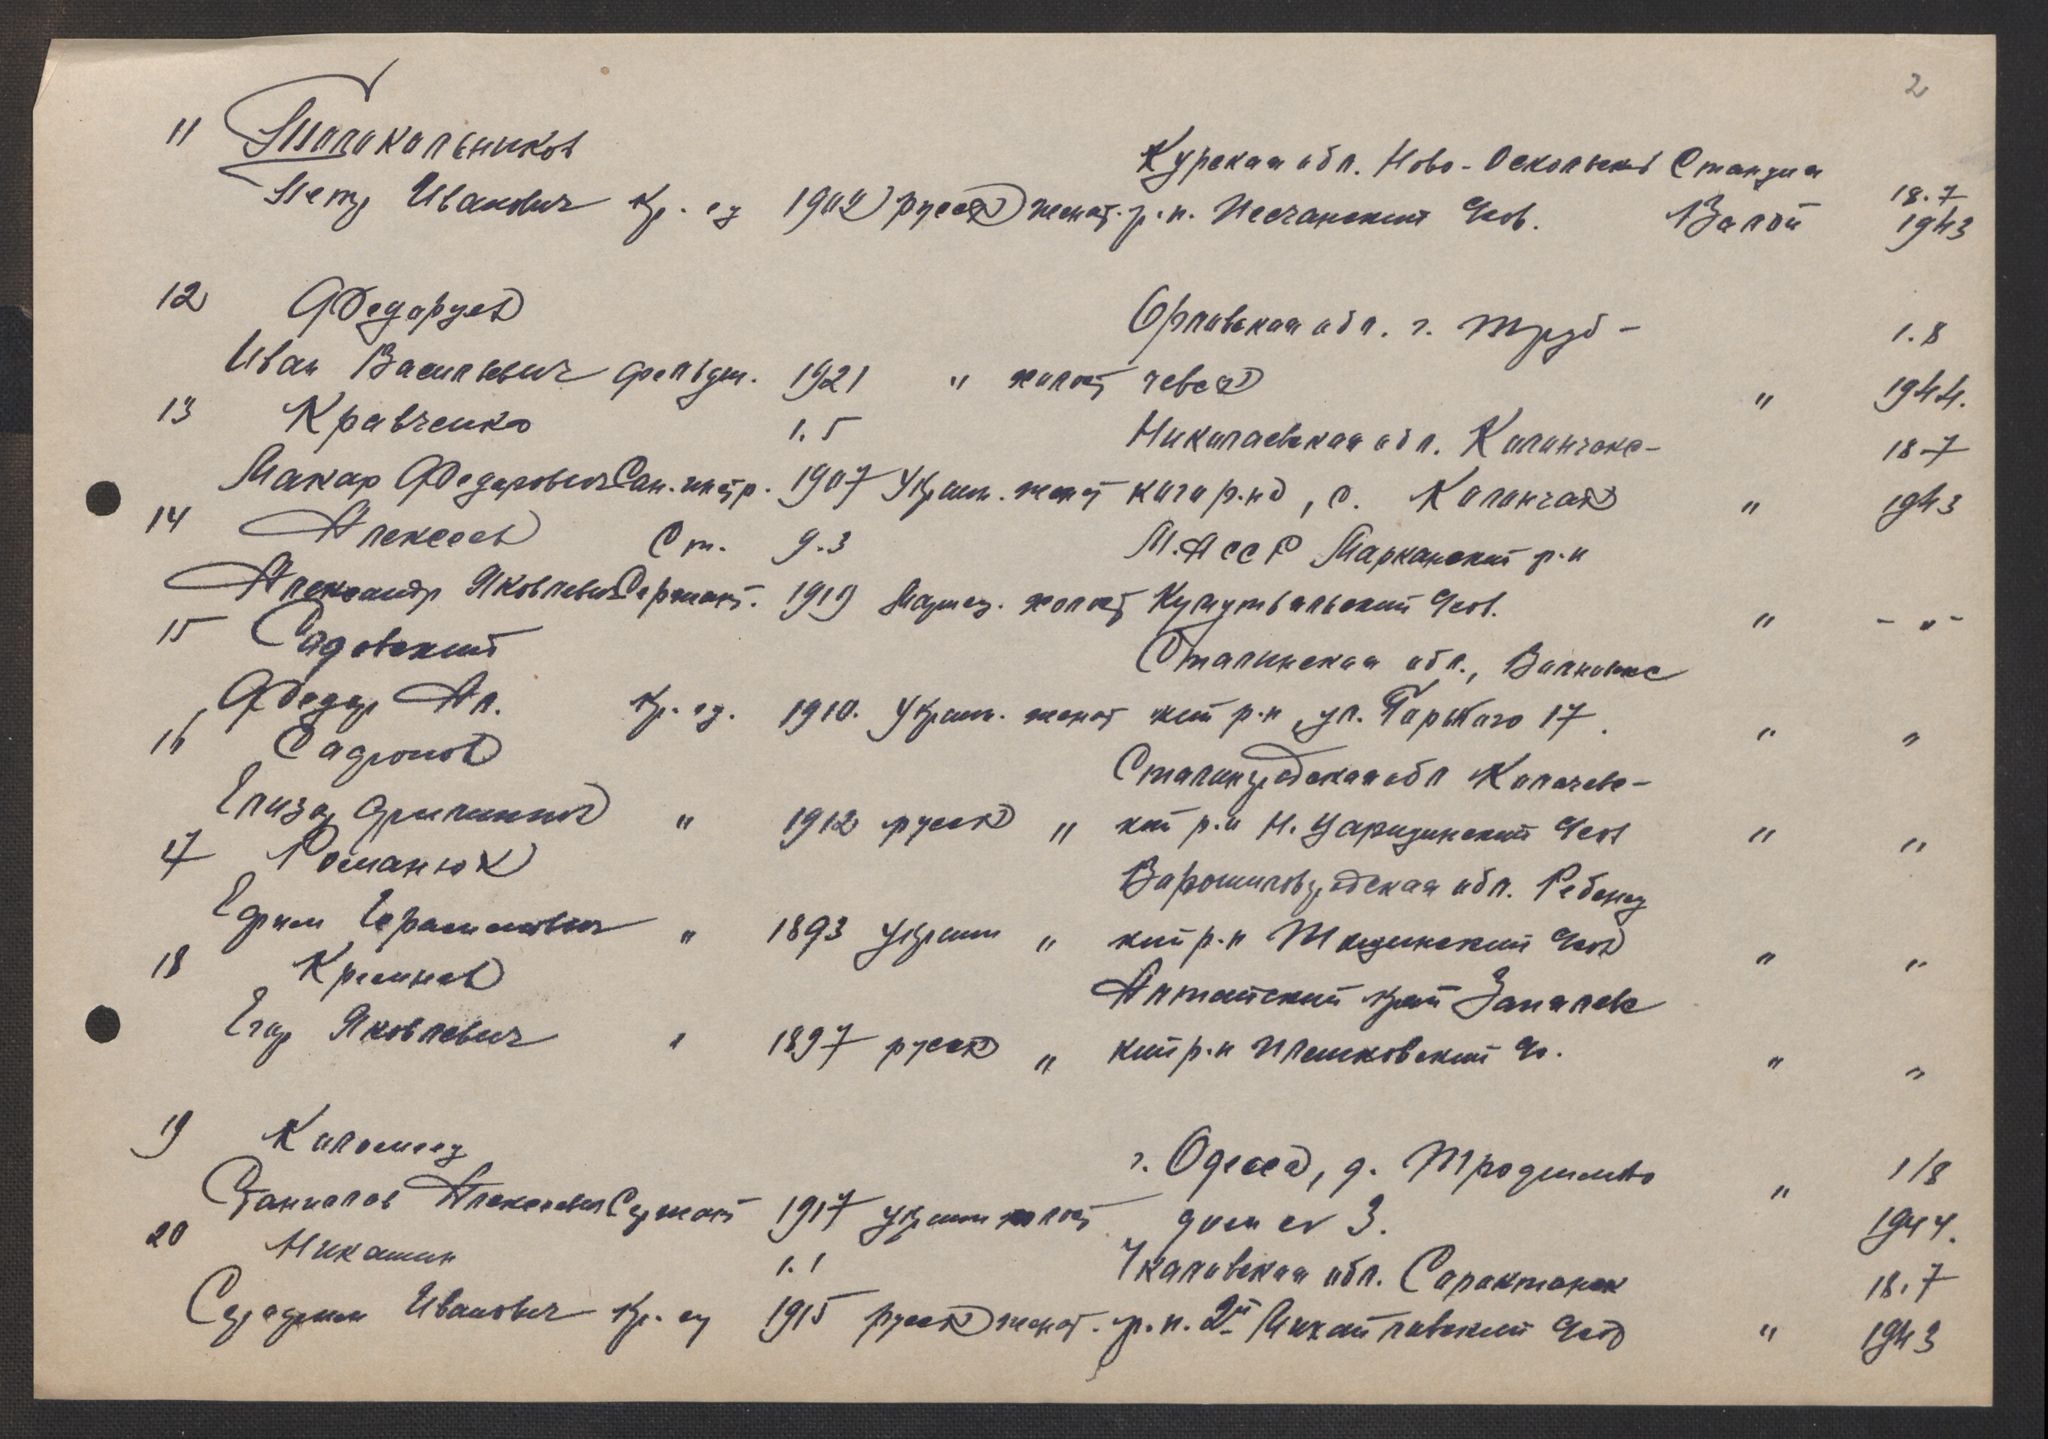 2
11 Толокольников
Курская обл. Ново-Оскольск. Станция
Петр Иванович Кр. ец 1902 русск женат. р.н. Песчанский Ч/сов. Валой 18.7 1943
12 Федорцев
Орловская обл. г. Труб- 1.8
Иван Васильевич фельдш. 1921 " холост чевск " 1944.
13 Кравченко 1.5 Николаевская обл. Каланчакс- 18-7
Макар Федорович Сан. инстр. 1907 Украин. женат кого р-на, с. Каланчак " 1943
14 Алексеев Ст. 9.3 М.АССР Марканский р-н
Александр Яковлевич Сержант. 1919 Мариец. холост Ч/сов. " - " -
15 Садовский
Сталинская обл., Волновас
Федор Ал. Кр. ец. 1910. Украин. женат кий р-н, ул. Горького 17. " "
16 Сафонов
Сталинградская обл Калачевс-
Елизар Филиппов " 1912 русск " кий р-н Н. Царицинский Ч/сов " "
17 Романюк
Ворошиловградская обл.
Ефим Герасимович " 1893 украин " кий р-н Ч/сов " "
18 Креминев
Алтайский край
Егор Яковлевич " 1897 русск " кий р-н Плешковский Ч/с. " "
19 Коломеец
г. Одесса, д. " 1/8
Станислав Алексеевич Сержант 1917 украин холост дом № 3. 1944.
20 Никашин 1.1 Чкаловская обл. Сарактанск 18.7
Серафим Иванович Кр. ец 1915 русск женат. р.н. 2й Михайловский Ч/сов " 1943